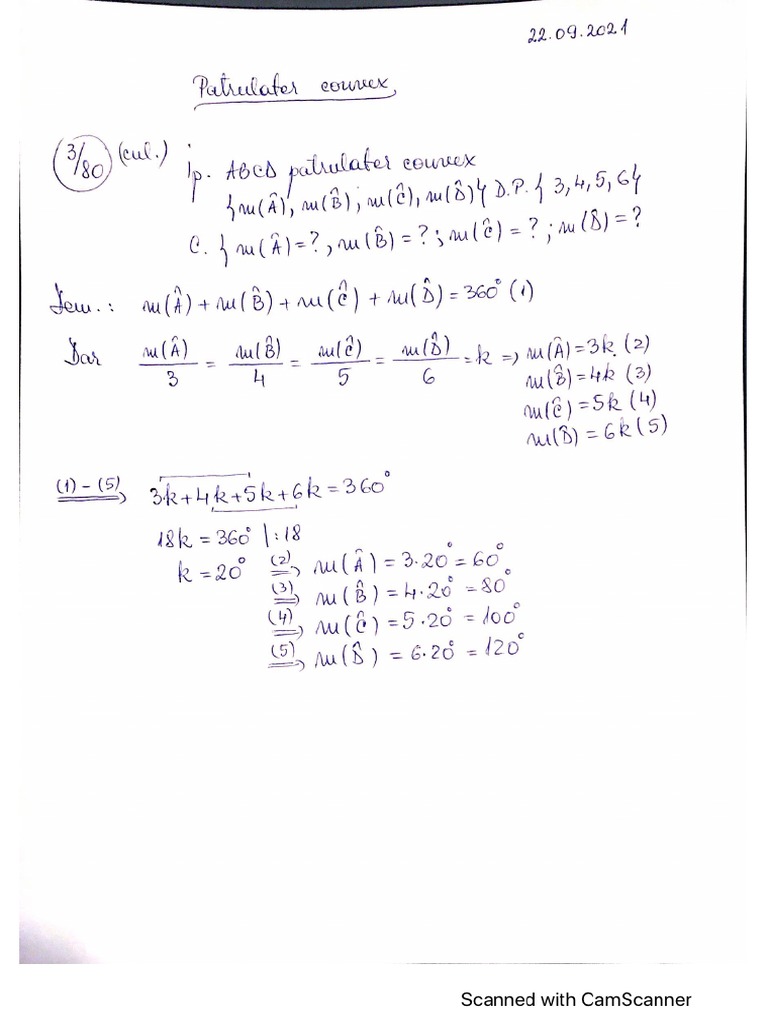 22.09.2021
Patrulater convex
3/80 (cul.) ip. ABCD patrulater convex
{m(Â), m(B̂), m(Ĉ), m(D̂)} D.P. {3,4,5,6}
C. { m(Â)=?, m(B̂)=?; m(Ĉ)=?; m(D̂)=?
Dem.: m(Â)+m(B̂)+m(Ĉ)+m(D̂)=360° (1)
Dar m(Â)/3 = m(B̂)/4 = m(Ĉ)/5 = m(D̂)/6 = k => m(Â)=3k (2)
m(B̂)=4k (3)
m(Ĉ)=5k (4)
m(D̂)=6k (5)
(1)-(5) => 3k+4k+5k+6k=360°
18k=360° |:18
k=20° (2) => m(Â)=3·20°=60°
(3) => m(B̂)=4·20°=80°
(4) => m(Ĉ)=5·20°=100°
(5) => m(D̂)=6·20°=120°
Scanned with CamScanner